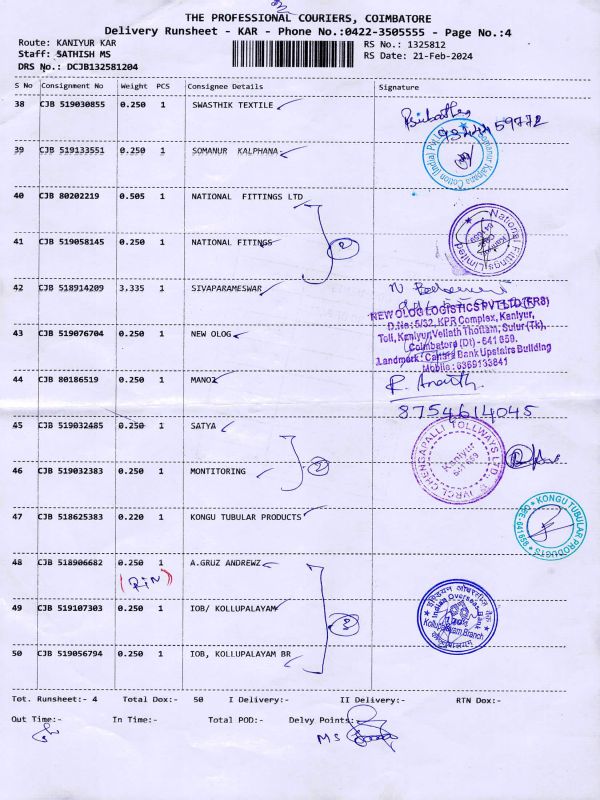 THE PROFESSIONAL COURIERS, COIMBATORE
Delivery Runsheet - KAR - Phone No.:0422-3505555 - Page No.:4
Route: KANIYUR KAR
RS No.: 1325812
Staff: SATHISH MS
RS Date: 21-Feb-2024
DRS No.: DCJB132581204
S No Consignment No Weight PCS Consignee Details Signature
38 CJB 519030855 0.250 1 SWASTHIK TEXTILE
39 CJB 519133551 0.250 1 SOMANUR KALPHANA
Somanur Kalpana Cotton (India) Pvt.
40 CJB 80202219 0.505 1 NATIONAL FITTINGS LTD
41 CJB 519058145 0.250 1 NATIONAL FITTINGS
2
National Fittings Limited
42 CJB 518914209 3.335 1 SIVAPARAMESWAR
NEW OLOG LOGISTICS PVT LTD (FR8)
D.No: 5/32, KPR Complex, Kaniyur,
Toll, Kaniyur, Vellath Thottam, Sulur (Tk),
Coimbatore (Dt) - 641 659.
Landmark: Canara Bank Upstairs Building
Mobile: 6369133841
43 CJB 519076704 0.250 1 NEW OLOG
44 CJB 80186519 0.250 1 MANOJ
R. Ananth.
8754614045
45 CJB 519032485 0.250 1 SATYA
46 CJB 519032383 0.250 1 MONTITORING
2
IVRCL CHENGAPALLI TOLLWAYS LTD
Kaniyur
47 CJB 518625383 0.220 1 KONGU TUBULAR PRODUCTS
KONGU TUBULAR PRODUCTS
48 CJB 518906682 0.250 1 A.GRUZ ANDREWZ
49 CJB 519107303 0.250 1 IOB/ KOLLUPALAYAM
3
इण्डियन ओवरसीज़ बैंक
Indian Overseas Bank
Kollupalayam Branch
50 CJB 519056794 0.250 1 IOB, KOLLUPALAYAM BR
Tot. Runsheet:- 4 Total Dox:- 50 I Delivery:- II Delivery:- RTN Dox:-
Out Time:- In Time:- Total POD:- Delvy Points:-
MS